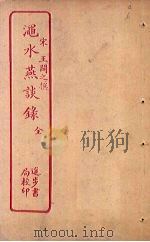 宋 王闢之撰
澠水燕談錄 全
進步書
局校印